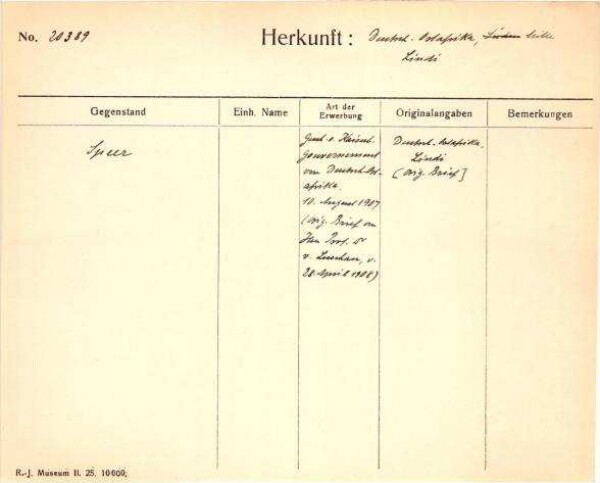 No. 20389
Herkunft: Deutsch-Ostafrika,
Lindi
Gegenstand
Einh. Name
Art der Erwerbung
Originalangaben
Bemerkungen
Speer
Gesch. v. Kaiserl.
Gouvernement
von Deutsch-Ost-
afrika.
10. August 1907
(Orig. Brief an
Hrn Prof. Dr
v. Luschan, v.
28 April 1908)
Deutsch-Ostafrika,
Lindi
(Orig. Brief]
R.-J. Museum II. 25. 10000;